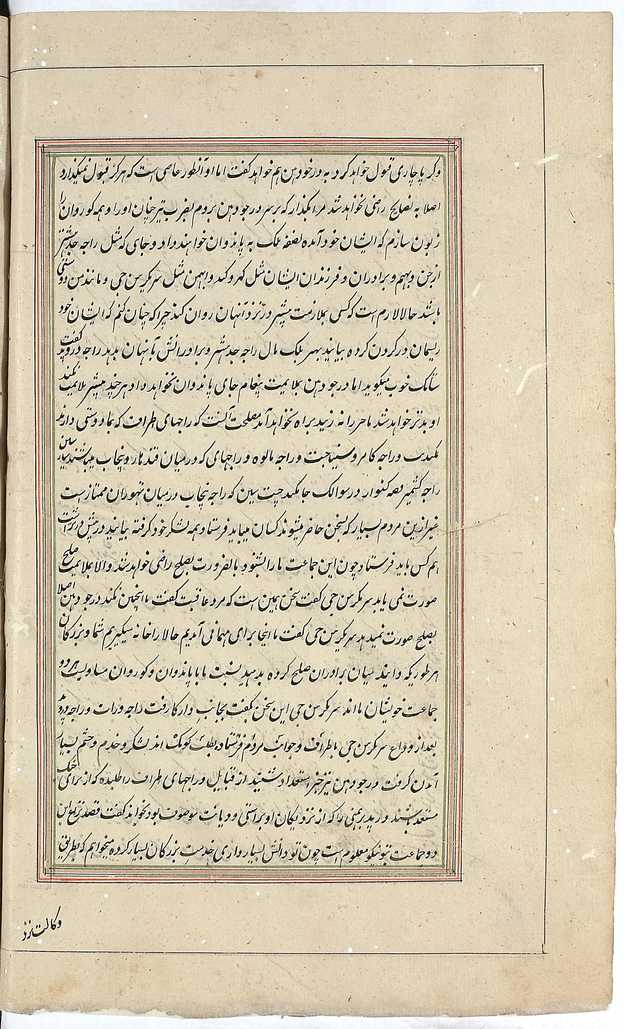 وکر پا چاری قبول خواهد کرد به درجودهن هم خواهد گفت اما او آنطور عاصی است که هرگز قبول نمیگذارد
اصلا به نصایح راضی نخواهد شد مرا بگذار که بر سر درجودهن بروم بضرب تیر جهان او را و همه کوروان را
زبون سازم که ایشان خود آمده نصفه ملک به پاندوان خواهند داد و جای که مثل راجه جدهشتر
ارجن و بهیم و برادران و فرزندان ایشان مثل گهروکه و ابهمن مثل سرکرسن جی و مانند من دوستی
باشد حالا لازم است که کسی بملازمت پیشتر در نزد آنهان روان کند چرا که چنان کنم که ایشان خود
ریسمان در گردن کرده بیایند بهر ملک مال راجه جدهشتر و برادرانش بآنهان بدهد راجه دروپد گفت
ساتک خوب میگوید اما درجودهن بملایمت پیغام جای پاندوان نخواهد داد هر چند پیشتر ملایمت کنید
او بدتر خواهد شد تا خر را نه زنید براه نخواهد آمد مصلحت آنست که راجهای طرافت که بما دوستی دارند
و راجه کامرو و سینیاجت و راجه مالوه و راجهای که در میان قندهار و پنجاب میباشند
راجه کشمیر که راجه پنجاب در میان تهوران ممتاز است
غیر ازین مردم بسیار که سخن حاضر میشوند کسان میباید فرستاد و همه لشکر خود گرفته بیایند
هم کس باید فرستاد چون این جماعت ما را بشنود بالضرورت بصلح راضی خواهد شد و الا بملایمت صلح
صورت نمی یابد سرکرسن جی گفت سخن همین است که مرد عاقبت گفت ما اینچنین نکند درجودهن اصلا
بصلح صورت نمیدهد سرکرسن جی گفت ما اینجا برای مهمانی آمدیم حالا راه خانه میگیریم شما و بزرگان
هر طوریکه دانند میان برادران صلح کروه بدهید نسبت ما با پاندوان و کوروان مساویست هر دو
جماعت خویشان مااند سرکرسن جی این سخن گفت بجانب دوارکا رفت راجه ورات و راجه دروپد
بعد از وداع سرکرسن جی باطراف و جوانب مردم فرستاد بطلب کومک اند لشکر و خدم و حشم بسیار
آمدن گرفت درجودهن نیز خبر استعداد شنید از قبایل و راجهای طرف را طلبده که از برای جنگ
مستعد باشند دروپد برهمنی را که از نزدیکان او براستی و دیانت موصوف بود بخواند گفت قصد نزاع این
دو جماعت بتو نیکو معلوم است چون تو دانش بسیار داری خدمت بزرگان بسیار کرده میخواهم که بطریق
وکالت نزد